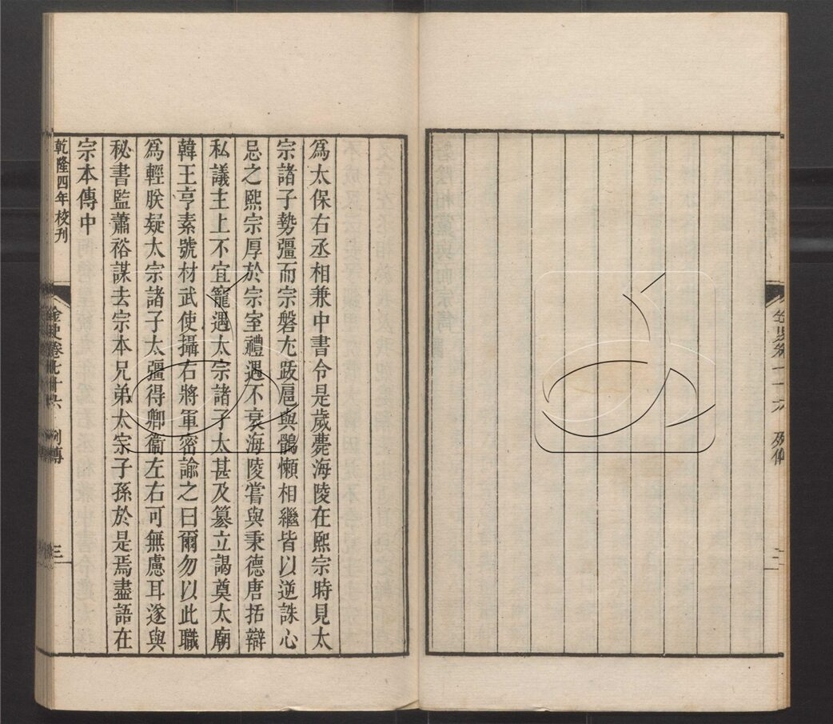 為太保右丞相兼中書令是歲薨海陵在熙宗時見太
宗諸子勢彊而宗磐尤跋扈與鶻懶相繼皆以逆誅心
忌之熙宗厚於宗室禮遇不衰海陵嘗與秉德唐括辯
私議主上不宜寵遇太宗諸子太甚及簒立謁奠太廟
韓王亨素號材武使攝右將軍密諭之曰爾勿以此職
為輕朕疑太宗諸子太彊得卿衞左右可無慮耳遂與
秘書監蕭裕謀去宗本兄弟太宗子孫於是焉盡語在
宗本傳中
乾隆四年校刊
金史卷七十六 列傳 三